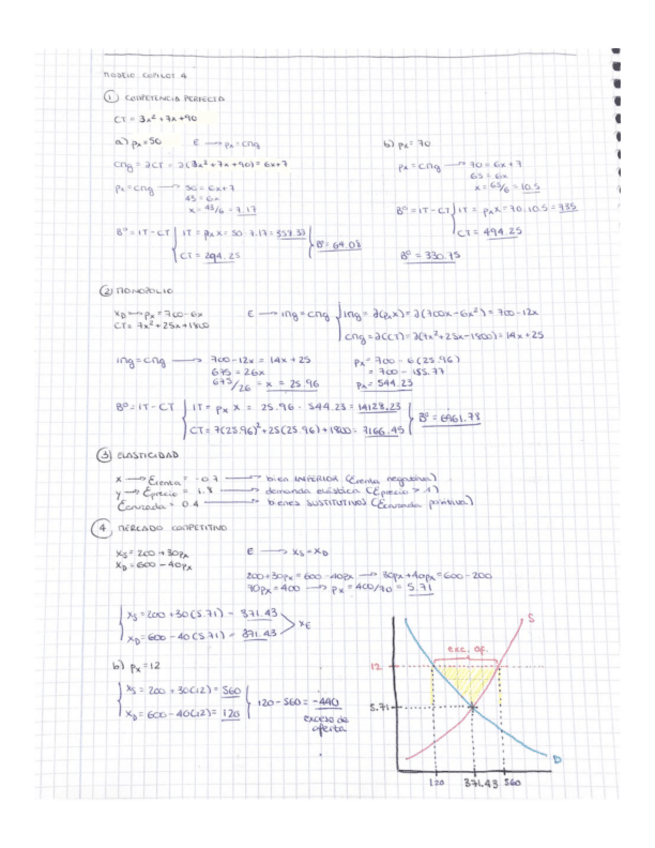 MODELO CONLOT 4
① COMPETENCIA PERFECTA
CT = 3x² + 7x + 90
a) px = 50 E → px = Cmg
Cmg = ∂CT = ∂(3x² + 7x + 90) = 6x + 7
px = Cmg → 50 = 6x + 7
43 = 6x
x = 43/6 = 7.17
Bº = IT - CT IT = px x = 50 · 7.17 = 358.33
CT = 294.25
Bº = 64.08
b) px = 70
px = Cmg → 70 = 6x + 7
63 = 6x
x = 63/6 = 10.5
Bº = IT - CT IT = px x = 70 · 10.5 = 735
CT = 494.25
Bº = 330.75
② MONOPOLIO
XD → px = 700 - 6x
CT = 7x² + 25x + 1800
E → Img = Cmg Img = ∂(px x) = ∂(700x - 6x²) = 700 - 12x
Cmg = ∂(CT) = ∂(7x² + 25x - 1800) = 14x + 25
Img = Cmg → 700 - 12x = 14x + 25
675 = 26x
675/26 = x = 25.96
px = 700 - 6(25.96)
= 700 - 155.77
px = 544.23
Bº = IT - CT IT = px x = 25.96 · 544.23 = 14128.23
CT = 7(25.96)² + 25(25.96) + 1800 = 7166.45
Bº = 6961.78
③ ELASTICIDAD
x → Erenta = -0.7 → bien INFERIOR (Erenta negativa)
y → Eprecio = 1.8 → demanda elástica (Eprecio > 1)
Ecruzada = 0.4 → bienes SUSTITUTIVOS (Ecruzada positiva)
④ MERCADO COMPETITIVO
XS = 200 + 30px
XD = 600 - 40px
E → XS = XD
200 + 30px = 600 - 40px → 30px + 40px = 600 - 200
70px = 400 → px = 400/70 = 5.71
XS = 200 + 30(5.71) = 371.43
XD = 600 - 40(5.71) = 371.43
XE
b) px = 12
XS = 200 + 30(12) = 560
XD = 600 - 40(12) = 120
120 - 560 = -440
exceso de
oferta
S
exc. of.
12
5.71
D
120 371.43 560